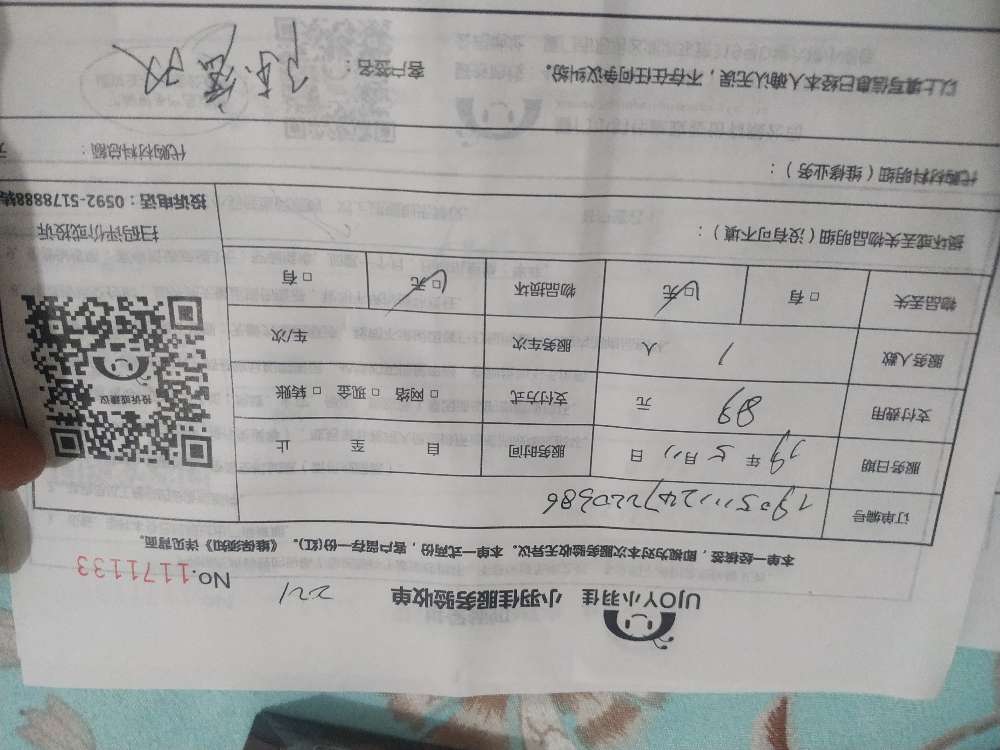 UJOY小羽佳 小羽佳服务验收单 221 No.1171133
本单一经接签，即视为对本次服务验收无异议。本单一式两份，客户留存一份(红)。《维保须知》详见背面。
订单编号 1905111247220386
服务日期 19 年 5 月 11 日 服务时间 自 至 止
支付费用 89 元 支付方式 □ 网络 □ 现金 □ 转账
服务人数 1 人 服务车次 车/次
物品丢失 □ 有 □ 无 物品损坏 □ 无 □ 有
投诉或建议
扫码评价或投诉
投诉电话：0592-5178888转
损坏或丢失物品明细（没有可不填）：
代购材料明细（维修业务）： 代购材料总额：
以上填写信息已经本人确认无误，不存在任何争议纠纷。 客户签名：